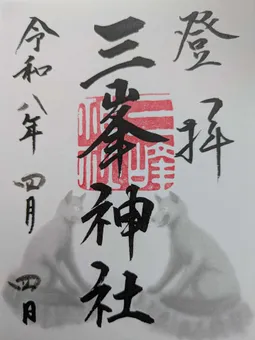 登拝
三峯神社
令和八年四月四日